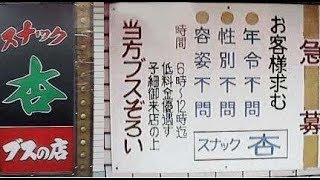 スナック
杏
ブスの店
急募
お客様求む
●年令不問
●性別不問
●容姿不問
スナック 杏
時間 6時〜12時迄
低料金優遇す
子細御来店の上
当方ブスぞろい